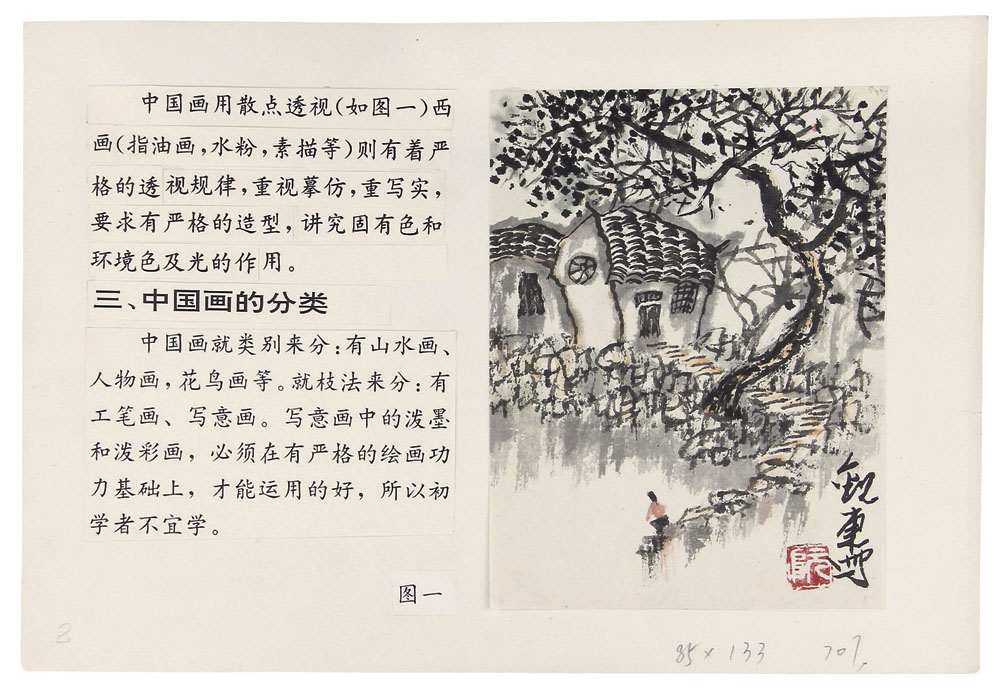 中国画用散点透视(如图一)西
画(指油画,水粉,素描等)则有着严
格的透视规律,重视摹仿,重写实,
要求有严格的造型,讲究固有色和
环境色及光的作用。
三、中国画的分类
中国画就类别来分:有山水画、
人物画,花鸟画等。就枝法来分:有
工笔画、写意画。写意画中的泼墨
和泼彩画,必须在有严格的绘画功
力基础上,才能运用的好,所以初
学者不宜学。
图一
2
85×133